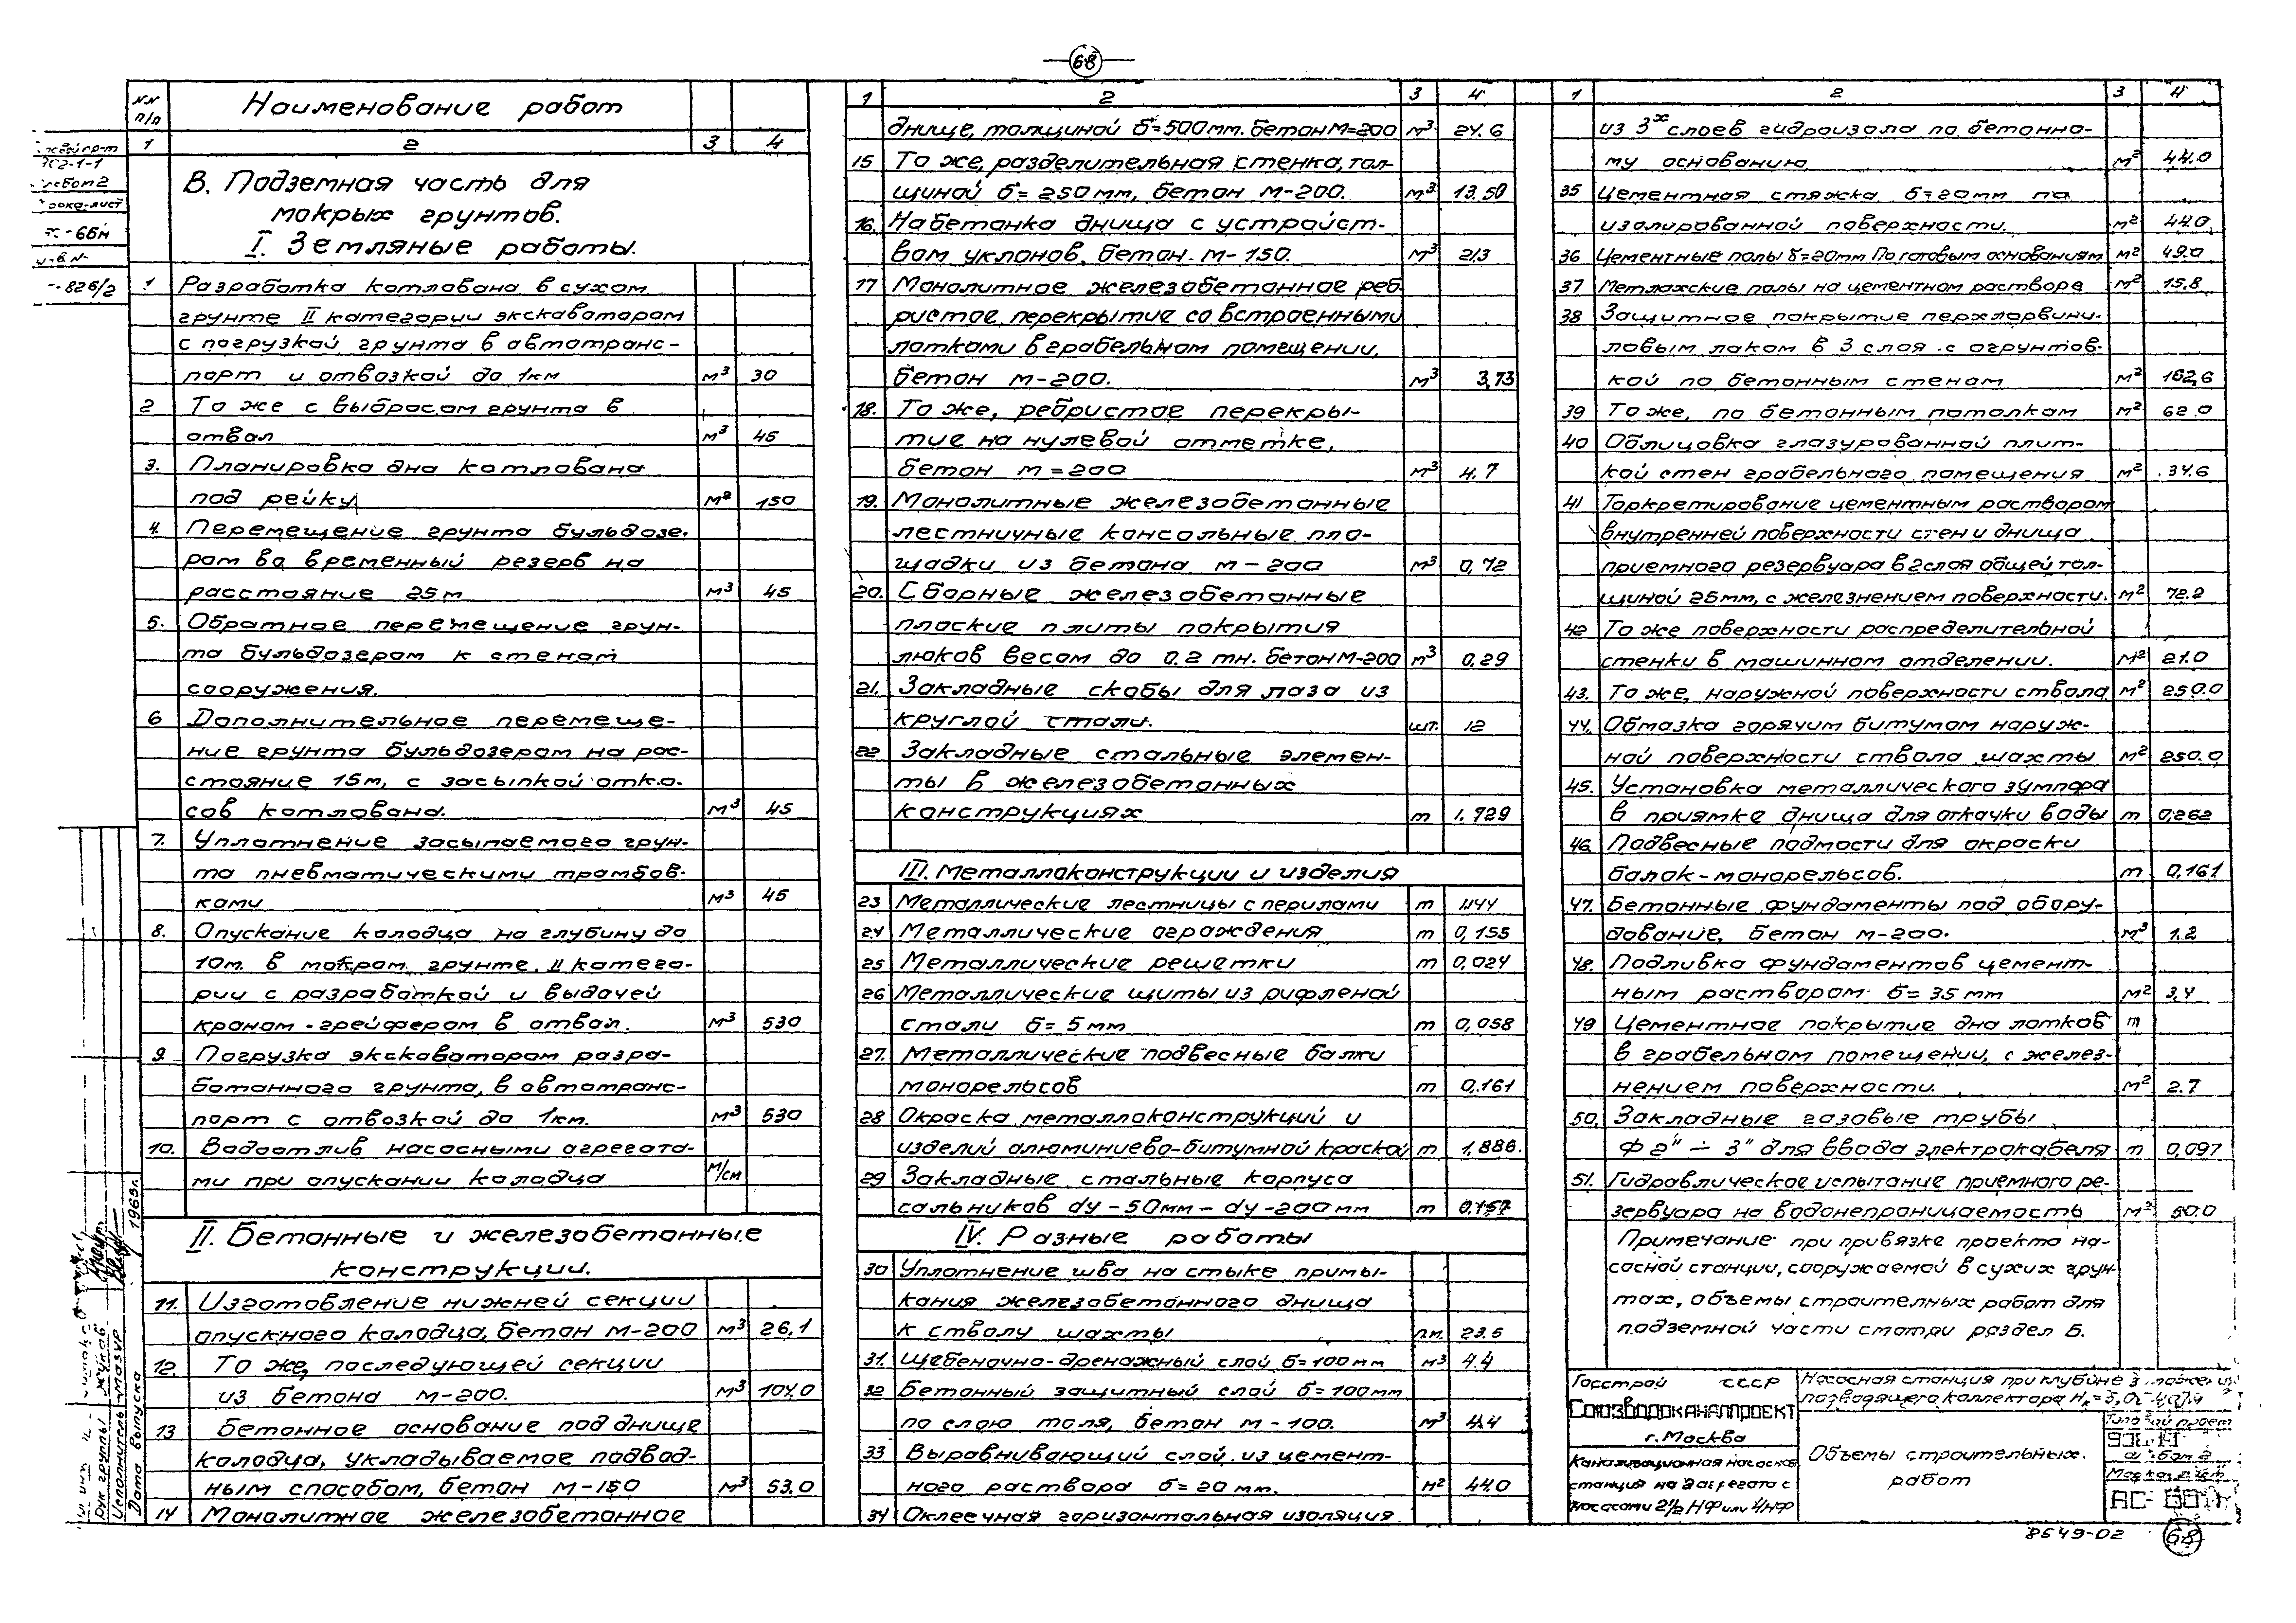 68
NN п/п Наименование работ
1 2 3 4
В. Подземная часть для
мокрых грунтов.
I. Земляные работы.
1 Разработка котлована в сухом
грунте II категории экскаватором
с погрузкой грунта в автотранс-
порт и отвозкой до 1км м³ 30
2 То же с выбросом грунта в
отвал м³ 45
3. Планировка дна котлована
под рейку м² 150
4. Перемещение грунта бульдозе-
ром во временный резерв на
расстояние 25м м³ 45
5. Обратное перемещение грун-
та бульдозером к стенам
сооружения.
6 Дополнительное перемеще-
ние грунта бульдозером на рас-
стояние 15м, с засыпкой отко-
сов котлована. м³ 45
7. Уплотнение засыпаемого грун-
та пневматическими трамбов-
ками м³ 45
8. Опускание колодца на глубину до
10м. в мокром грунте. II катего-
рии с разработкой и выдачей
краном-грейфером в отвал. м³ 530
9. Погрузка экскаватором разра-
ботанного грунта, в автотранс-
порт с отвозкой до 1км. м³ 530
10. Водоотлив насосными агрегата-
ми при опускании колодца м/см
II. Бетонные и железобетонные
конструкции.
11. Изготовление нижней секции
опускного колодца, бетон М-200 м³ 26,1
12. То же, последующей секции
из бетона М-200. м³ 104.0
13 Бетонное основание под днище
колодца, укладываемое подвод-
ным способом, бетон М-150 м³ 53.0
14 Монолитное железобетонное
1 2 3 4
днище, толщиной б=500мм. бетон М=200 м³ 24.6
15 То же, разделительная стенка, тол-
щиной б=250мм, бетон М-200. м³ 13.50
16. Набетонка днища с устройст-
вом уклонов, бетон М-150. м³ 213
17 Монолитное железобетонное реб-
ристое перекрытие со встроенными
лотками в грабельном помещении,
бетон М-200. м³ 3,73
18. То же, ребристое перекры-
тие на нулевой отметке,
бетон М=200 м³ 4.7
19. Монолитные железобетонные
лестничные консольные пло-
щадки из бетона М-200 м³ 0,72
20. Сборные железобетонные
плоские плиты покрытия
люков весом до 0.2 тн. бетон М-200 м³ 0,29
21. Закладные скобы для лаза из
круглой стали. шт. 12
22 Закладные стальные элемен-
ты в железобетонных
конструкциях т 1.729
III. Металлоконструкции и изделия
23 Металлические лестницы с перилами т 1.144
24 Металлические ограждения т 0,155
25 Металлические решетки т 0,024
26 Металлические щиты из рифленой
стали б=5мм т 0,058
27. Металлические подвесные балки
монорельсов т 0,161
28 Окраска металлоконструкций и
изделий алюминиево-битумной краской т 1,886.
29 Закладные стальные корпуса
сальников dу-50мм - dу-200мм т 0.157
IV. Разные работы
30 Уплотнение шва на стыке примы-
кания железобетонного днища
к стволу шахты п.м. 23.5
31. Щебеночно-дренажный слой б=100мм м³ 4.4
32 Бетонный защитный слой б=100мм
по слою толя, бетон М-100. м³ 4.4
33 Выравнивающий слой из цемент-
ного раствора б=20мм. м² 44.0
34 Оклеечная горизонтальная изоляция
1 2 3 4
из 3х слоев гидроизола по бетонно-
му основанию м² 44.0
35 Цементная стяжка б=20мм по
изолированной поверхности. м² 44.0
36 Цементные полы б=20мм по готовым основаниям м² 49.0
37 Метлахские полы на цементном растворе м² 15,8
38 Защитное покрытие перхлорвини-
ловым лаком в 3 слоя с огрунтов-
кой по бетонным стенам м² 162,6
39 То же, по бетонным потолкам м² 62.0
40 Облицовка глазурованной плит-
кой стен грабельного помещения м² 34.6
41 Торкретирование цементным раствором
внутренней поверхности стен и днища
приемного резервуара в 2 слоя общей тол-
щиной 25мм, с железнением поверхности. м² 72.2
42 То же поверхности распределительной
стенки в машинном отделении. м² 21.0
43. То же, наружной поверхности ствола м² 250.0
44. Обмазка горячим битумом наруж-
ной поверхности ствола шахты м² 250.0
45. Установка металлического зумпфа
в приямке днища для откачки воды т 0,262
46. Подвесные подмости для окраски
балок-монорельсов. т 0,161
47. Бетонные фундаменты под обору-
дование, бетон М-200. м³ 1.2
48. Подливка фундаментов цемент-
ным раствором б=35мм м² 3,4
49 Цементное покрытие дна лотков т
в грабельном помещении, с желез-
нением поверхности. м² 2.7
50. Закладные газовые трубы
Ф 2" ÷ 3" для ввода электрокабеля т 0,097
51. Гидравлическое испытание приемного ре-
зервуара на водонепроницаемость м³ 50.0
Примечание: при привязке проекта на-
сосной станции, сооружаемой в сухих грун-
тах, объемы строительных работ для
подземной части смотри раздел Б.
Госстрой СССР
Союзводоканалпроект
г. Москва
Канализационная насосная
станция на 2 агрегата с
насосами 2½ НФ или 4НФ
Насосная станция при глубине
подводящего коллектора
Объемы строительных
работ
8549-02 68
902-1-1
826/2
Рук группы Жуков
Исполнитель Мазур
Дата выпуска 1969г.